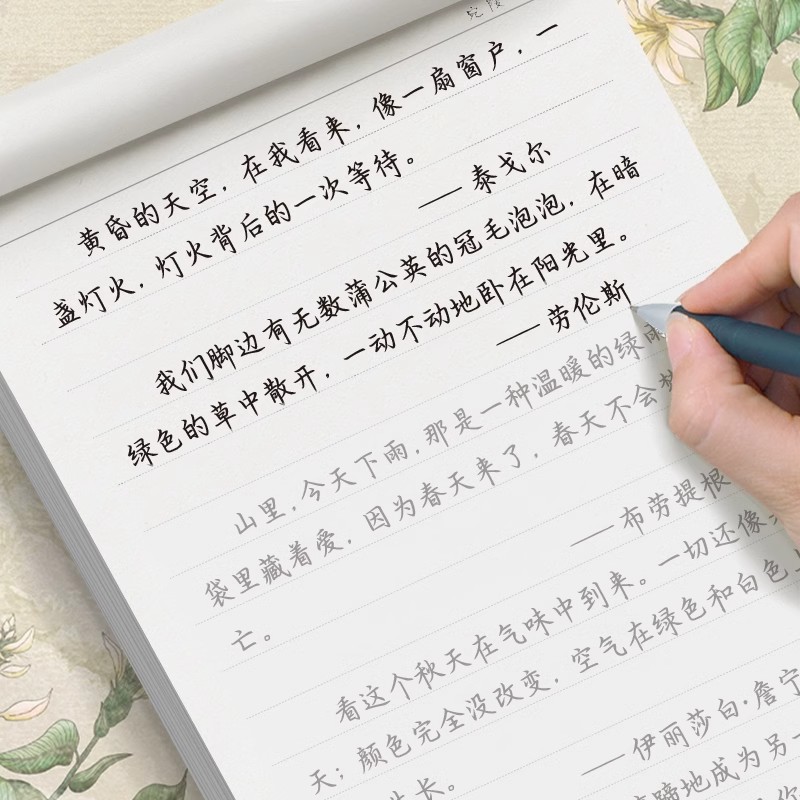 黄昏的天空，在我看来，像一扇窗户，一
盏灯火，灯火背后的一次等待。
——泰戈尔
我们脚边有无数蒲公英的冠毛泡泡，在暗
绿色的草中散开，一动不动地卧在阳光里。
——劳伦斯
山里，今天下雨，那是一种温暖的绿雨
袋里藏着爱，因为春天来了，春天不会
——布劳提根
亡。
看这个秋天在气味中到来。一切还像
天；颜色完全没改变，空气在绿色和白色
——伊丽莎白·詹宁
长。
地成为另一